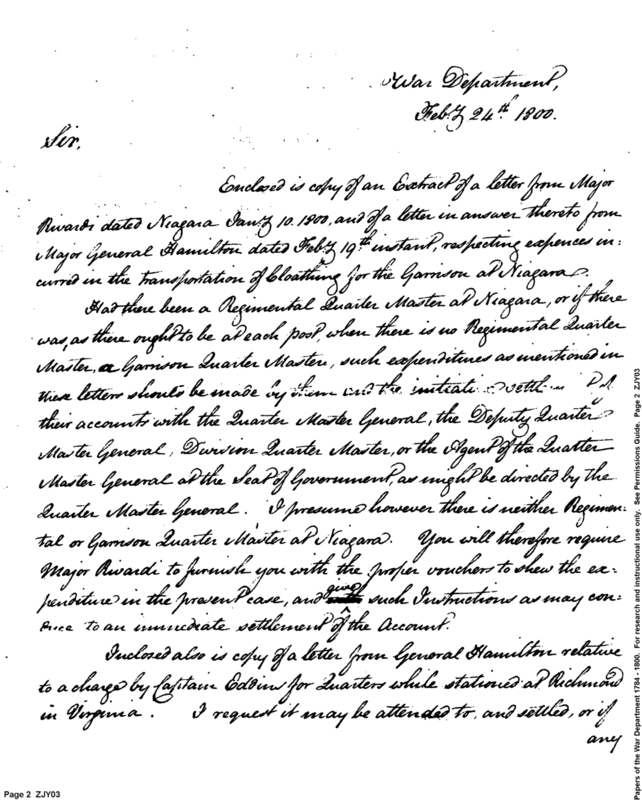 War Department,
Feby 24th. 1800.
Sir,
Enclosed is copy of an Extract of a letter from Major
Rivardi dated Niagara Jany 10. 1800, and of a letter in answer thereto from
Major General Hamilton dated Feby 19th instant, respecting expences in-
curred in the transportation of Cloathing for the Garrison at Niagara.
Had there been a Regimental Quarter Master at Niagara, or if there
was, as there ought to be at each post, when there is no Regimental Quarter
Master, a Garrison Quarter Master, such expenditures as mentioned in
these letters should be made by them and the
their accounts with the Quarter Master General, the Deputy Quarter
Master General, Division Quarter Master, or the Agent of the Quarter
Master General at the Seat of Government, as might be directed by the
Quarter Master General. I presume however there is neither Regimen-
tal or Garrison Quarter Master at Niagara. You will therefore require
Major Rivardi to furnish you with the proper vouchers to shew the ex-
penditure in the present case, and give such Instructions as may con-
duce to an immediate settlement of the Account.
Inclosed also is copy of a letter from General Hamilton relative
to a charge by Captain Eddins for Quarters while stationed at Richmond
in Virginia. I request it may be attended to, and settled, or if
any
Page 2 ZJY03
Papers of the War Department 1784 - 1800. For research and instructional use only. See Permissions Guide. Page 2 ZJY03